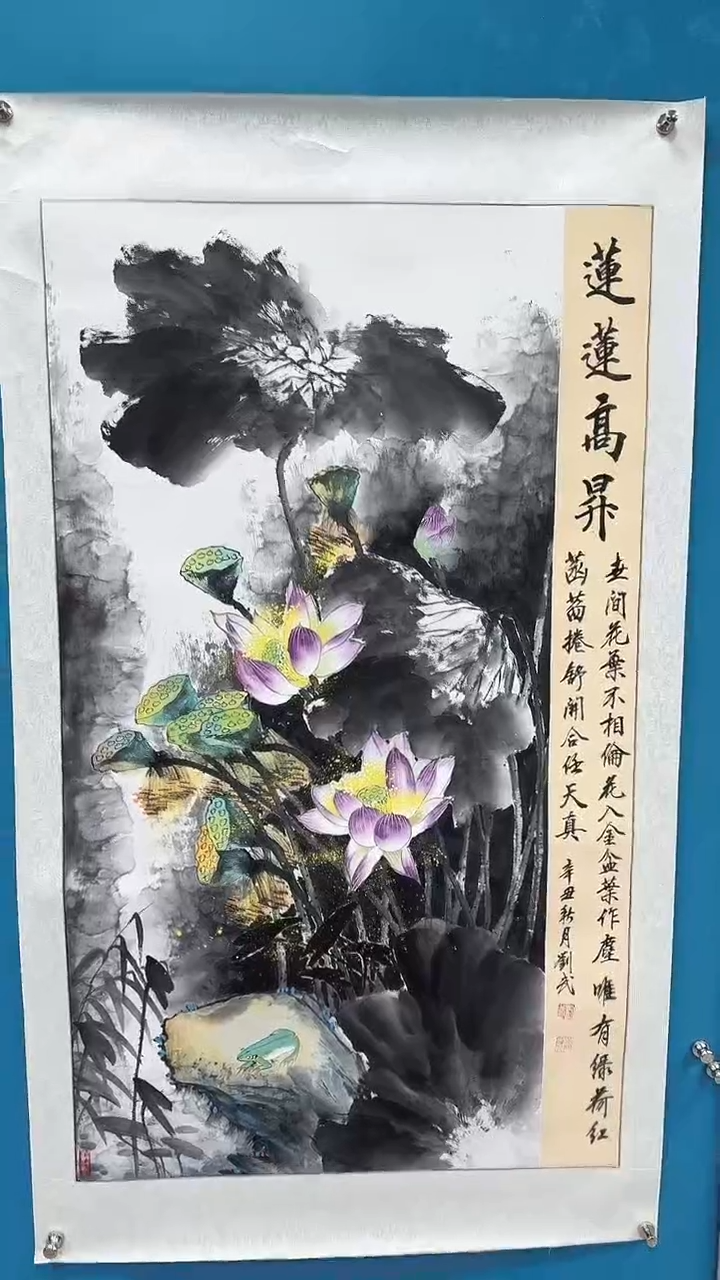 蓮蓮高昇
世间花葉不相倫花入金盆葉作塵唯有绿荷红
菡萏捲舒開合任天真
辛丑秋月劉武